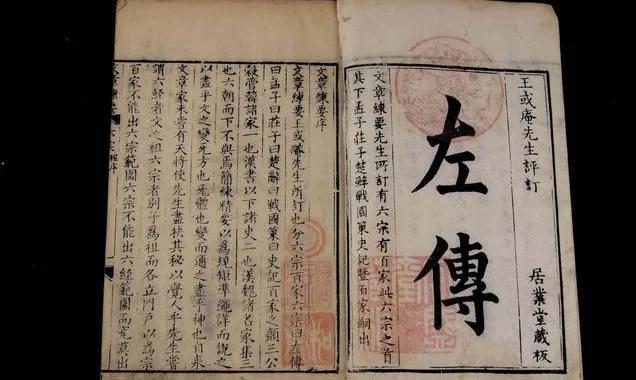 王或庵先生評訂
居業堂藏板
左傳
文章練要先生所訂有六宗有百家此六宗之首
其下孟子莊子楚辭戰國策史記暨百家嗣出
文章練要序
文章練要王或庵先生所訂也分六宗百家六宗曰左傳
曰孟子曰莊子曰楚辭曰戰國策曰史記百家之類三公
穀管韓諸家一也漢書以下諸史二也漢魏諸名家集三
也六朝而下不與焉簡練精要以爲規矩準繩詳而說之
以盡乎文之變先方也死體也變而通之盡乎神也自來
文章家未嘗有天將使先生盡抉其秘以覺人乎先生嘗
謂六經者文之祖六宗者別子爲祖而各立門戶以爲宗
百家不能出六宗範圍六宗不能出六經範圍而究莫出